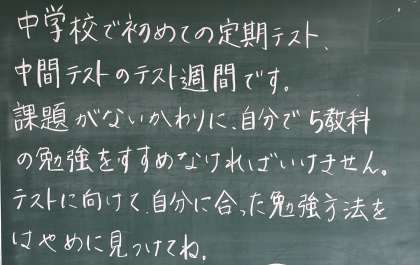 中学校で初めての定期テスト、
中間テストのテスト週間です。
課題がないかわりに、自分で5教科
の勉強をすすめなければいけません。
テストに向けて、自分に合った勉強方法を
はやめに見つけてね。